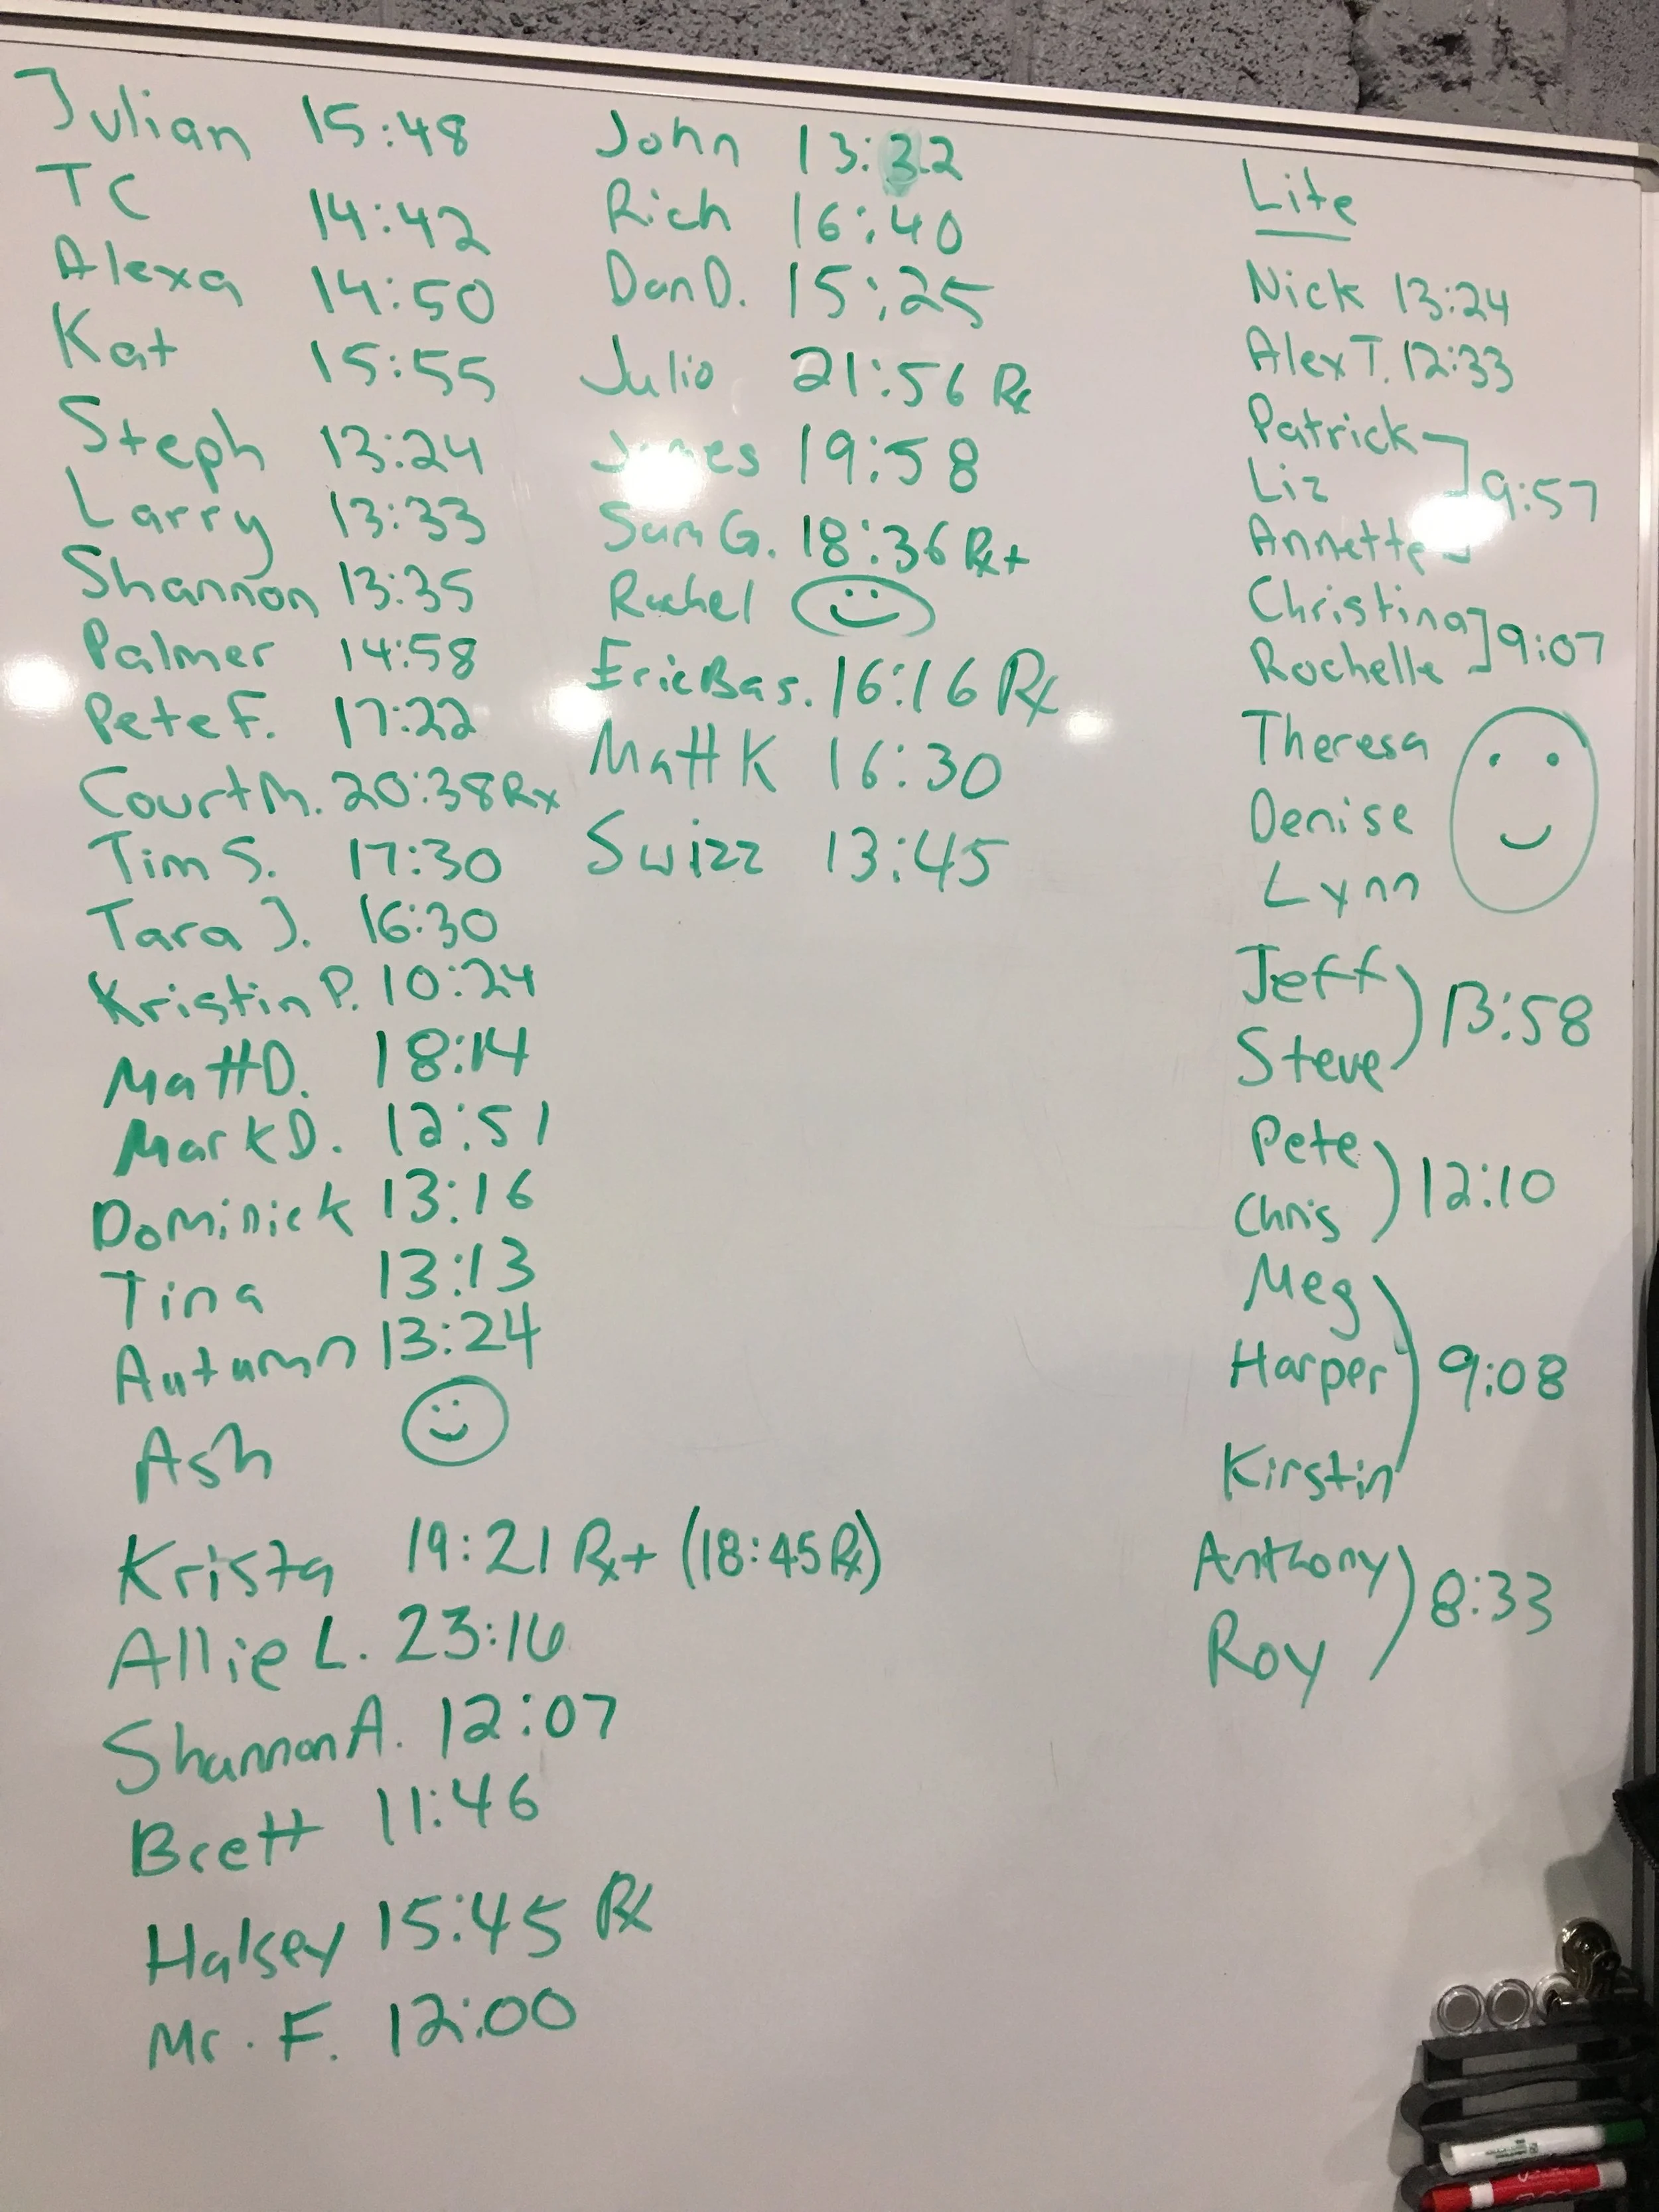 Julian 15:48
TC 14:42
Alexa 14:50
Kat 15:55
Steph 13:24
Larry 13:33
Shannon 13:35
Palmer 14:58
Pete F. 17:22
Court M. 20:38 Rx
Tim S. 17:30
Tara J. 16:30
Kristin P. 10:24
Matt D. 18:14
Mark D. 12:51
Dominick 13:16
Tina 13:13
Autumn 13:24
Ash
Krista 19:21 Rx+ (18:45 Rx)
Allie L. 23:16
Shannon A. 12:07
Brett 11:46
Halsey 15:45 Rx
Mr. F. 12:00
John 13:32
Rich 16:40
Dan D. 15:25
Julio 21:56 Rx
19:58
Sam G. 18:36 Rx+
Rachel
Eric Bas. 16:16 Rx
Matt K 16:30
Swizz 13:45
Lite
Nick 13:24
Alex T. 12:33
Patrick
Liz 9:57
Annette
Christina
Rochelle 9:07
Theresa
Denise
Lynn
Jeff
Steve 13:58
Pete
Chris 12:10
Meg
Harper 9:08
Kirstin
Anthony
Roy 8:33